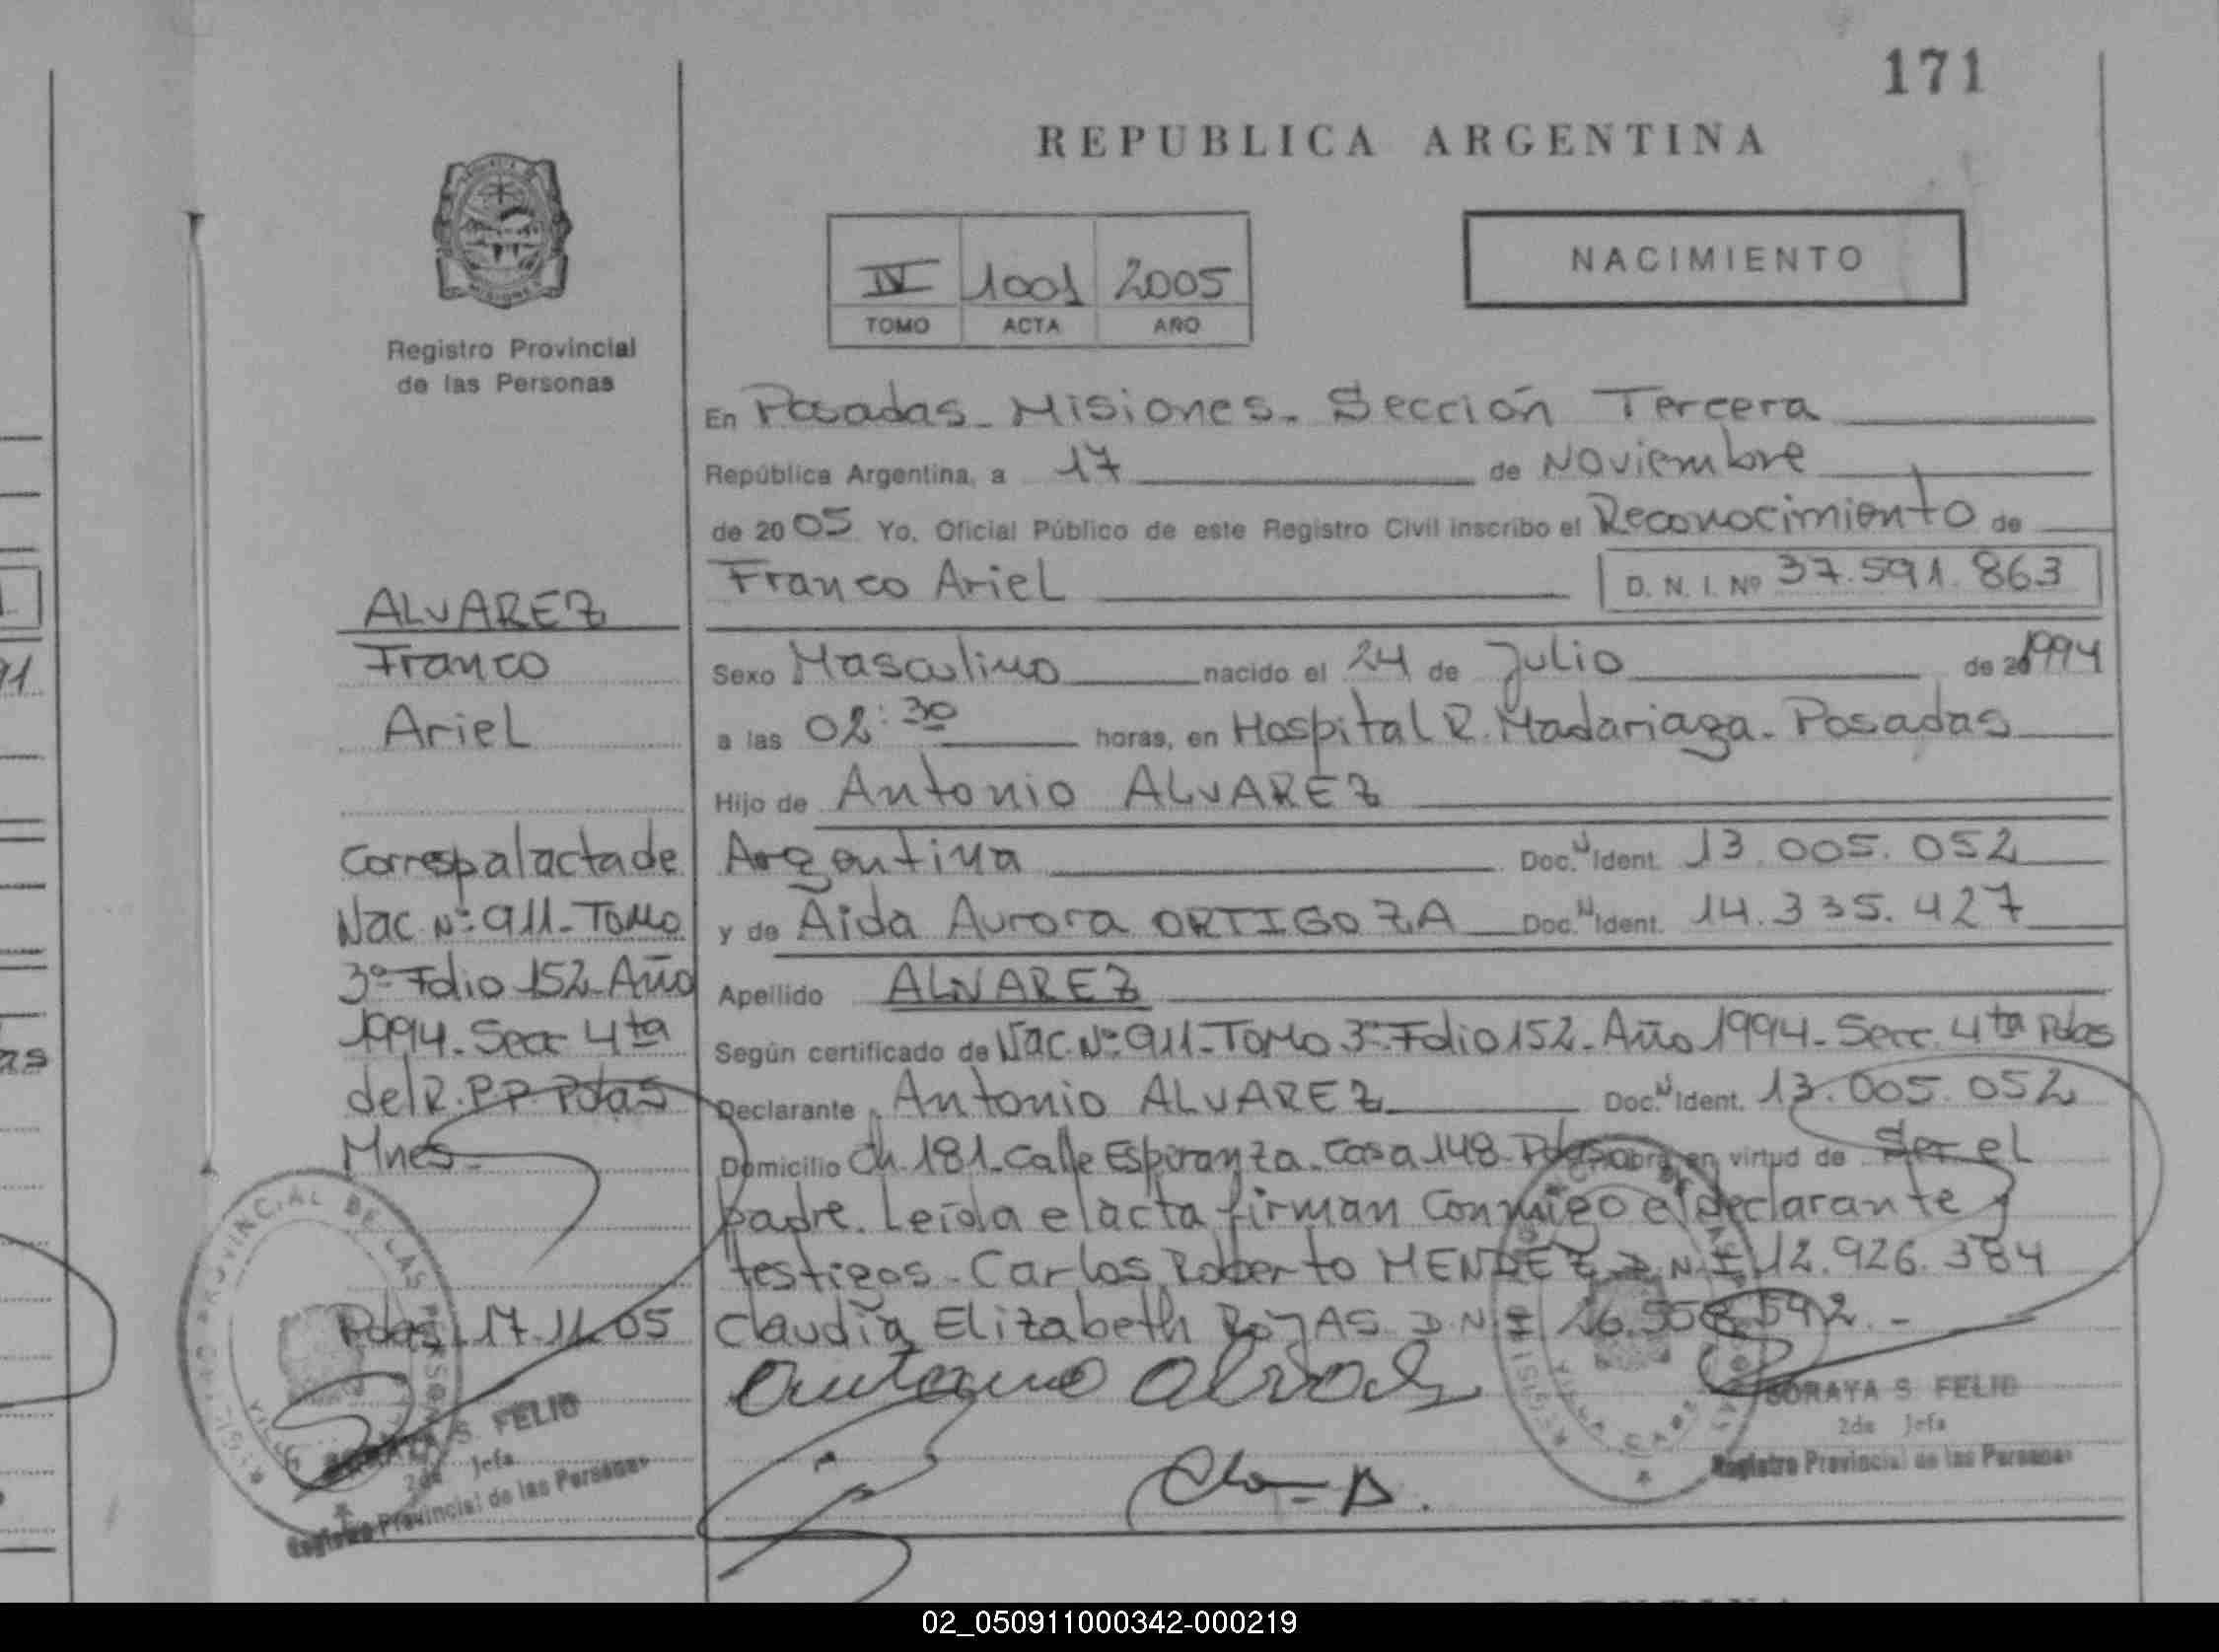 171
REPUBLICA ARGENTINA
NACIMIENTO
IV 1001 2005
TOMO ACTA AÑO
Registro Provincial
de las Personas
En Posadas - Misiones - Sección Tercera
República Argentina, a 17 de Noviembre
de 2005 Yo, Oficial Público de este Registro Civil inscribo el Reconocimiento de
Franco Ariel D. N. I. Nº 37.591.863
ALVAREZ
Franco
Ariel
Sexo Masculino nacido el 24 de Julio de 1994
a las 02:30 horas, en Hospital R. Madariaga - Posadas
Hijo de Antonio ALVAREZ
Argentina Doc. N Ident. 13.005.052
y de Aida Aurora ORTIGOZA Doc. N Ident. 14.335.427
Apellido ALVAREZ
Según certificado de Nac. Nº 911 - Tomo 3º Folio 152 - Año 1994 - Secc. 4ta Pdas
Declarante Antonio ALVAREZ Doc. N Ident. 13.005.052
Domicilio Ch. 181 - Calle Espiranza - Casa 148 - Pdas obra en virtud de Ser el
padre. Leída el acta firman conmigo el declarante y
testigos - Carlos Roberto MENDEZ D.N.I 12.926.384
Claudia Elizabeth ROJAS D.N.I
Corresp al acta de
Nac. Nº 911 - Tomo
3º Folio 152 - Año
1994 - Secc 4ta
del R.P.P Pdas
Mnes -
Pdas 17.11.05
SORAYA S FELIU
2da Jefa
Registro Provincial de las Personas
S. FELIU
2da Jefa
Registro Provincial de las Personas
02_050911000342-000219